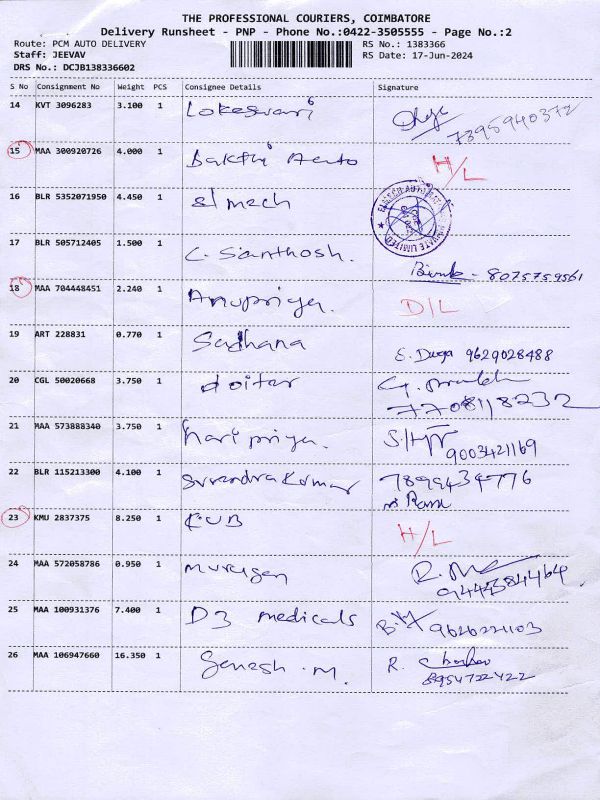 THE PROFESSIONAL COURIERS, COIMBATORE
Delivery Runsheet - PNP - Phone No.:0422-3505555 - Page No.:2
Route: PCM AUTO DELIVERY
Staff: JEEVAV
DRS No.: DCJB138336602
RS No.: 1383366
RS Date: 17-Jun-2024
S No Consignment No Weight PCS Consignee Details Signature
14 KVT 3096283 3.100 1 Lokeswari
7395940372
15 MAA 300920726 4.000 1 Sakthi Auto H/L
16 BLR 5352071950 4.450 1 elmech
PRIVATE LIMITED
17 BLR 505712405 1.500 1 C. Santhosh. 8075759561
18 MAA 704448451 2.240 1 Anupriya. D/L
19 ART 228831 0.770 1 Sadhana
S. Durga 9629028488
20 CGL 50020668 3.750 1 doitar
7708118232
21 MAA 573888340 3.750 1 hari priya.
9003421169
22 BLR 115213300 4.100 1 Surendra Kumar 7899434776
23 KMU 2837375 8.250 1 KUB H/L
24 MAA 572058786 0.950 1 Murugan
9442584464
25 MAA 100931376 7.400 1 D3 medicals 9626221103
26 MAA 106947660 16.350 1 Genesh .M. R.
8954722422